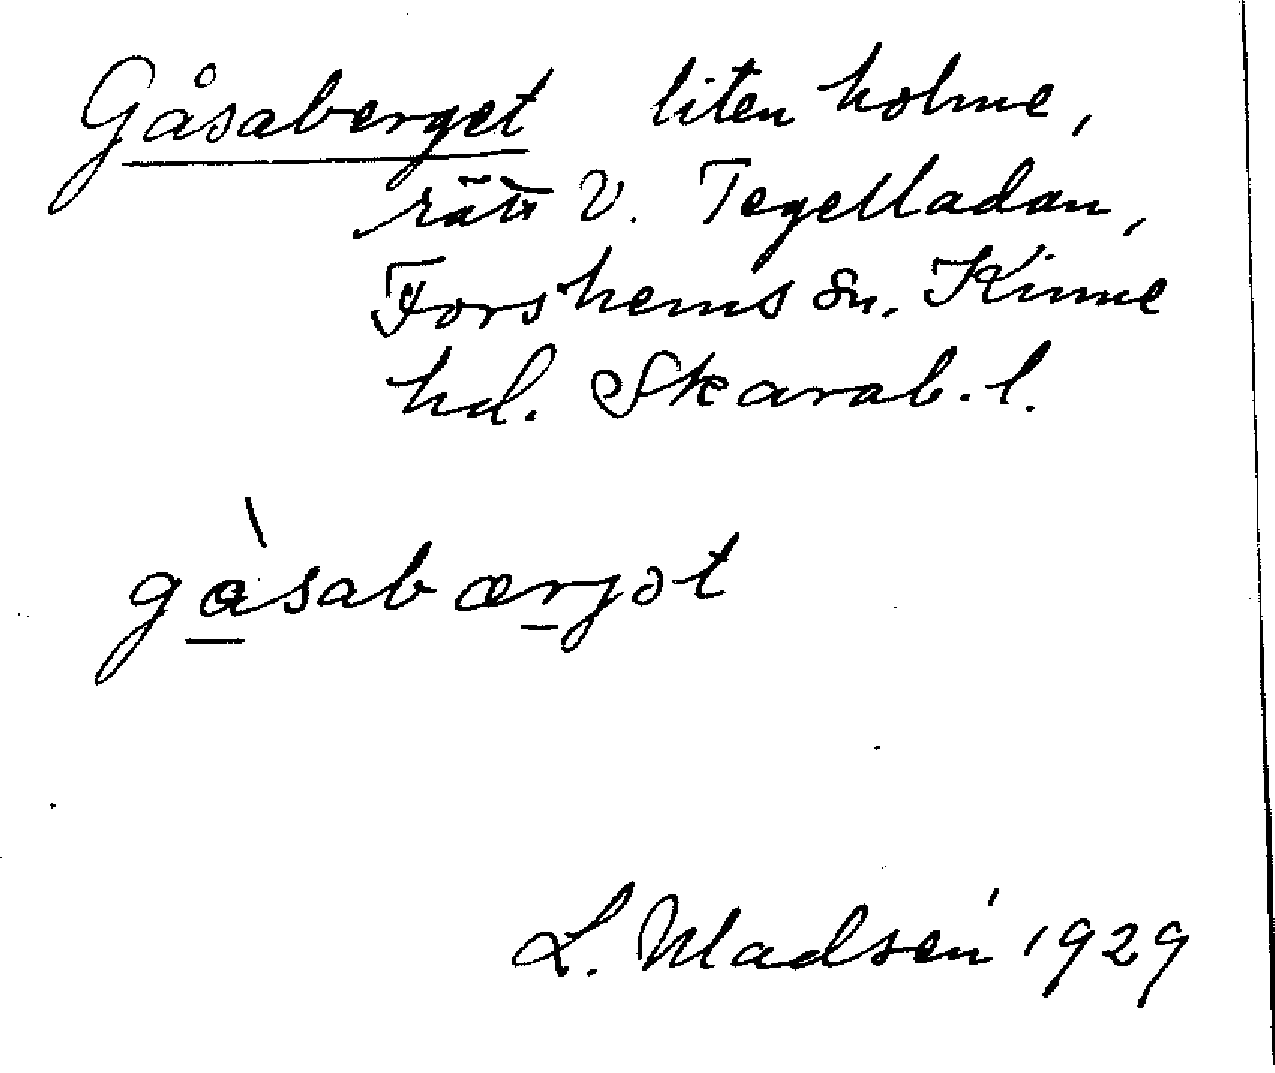 Gåsaberget liten holme,
rätt V. Tegelladan,
Forshems sn. Kinne
hd. Skarab. l.
gàsabærjət
L. Madsén 1929